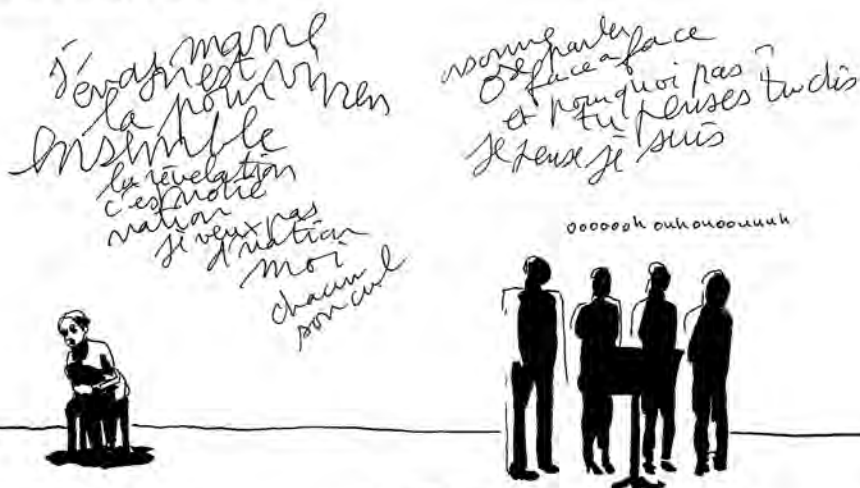 la pour
ensemble
la révélation
c'est notre
nation
je veux pas
d'nation
moi
chacun
son cul
parler
face a face
et pourquoi pas
tu penses tu dis
je pense je suis
ooooooh ouhouoouuuh